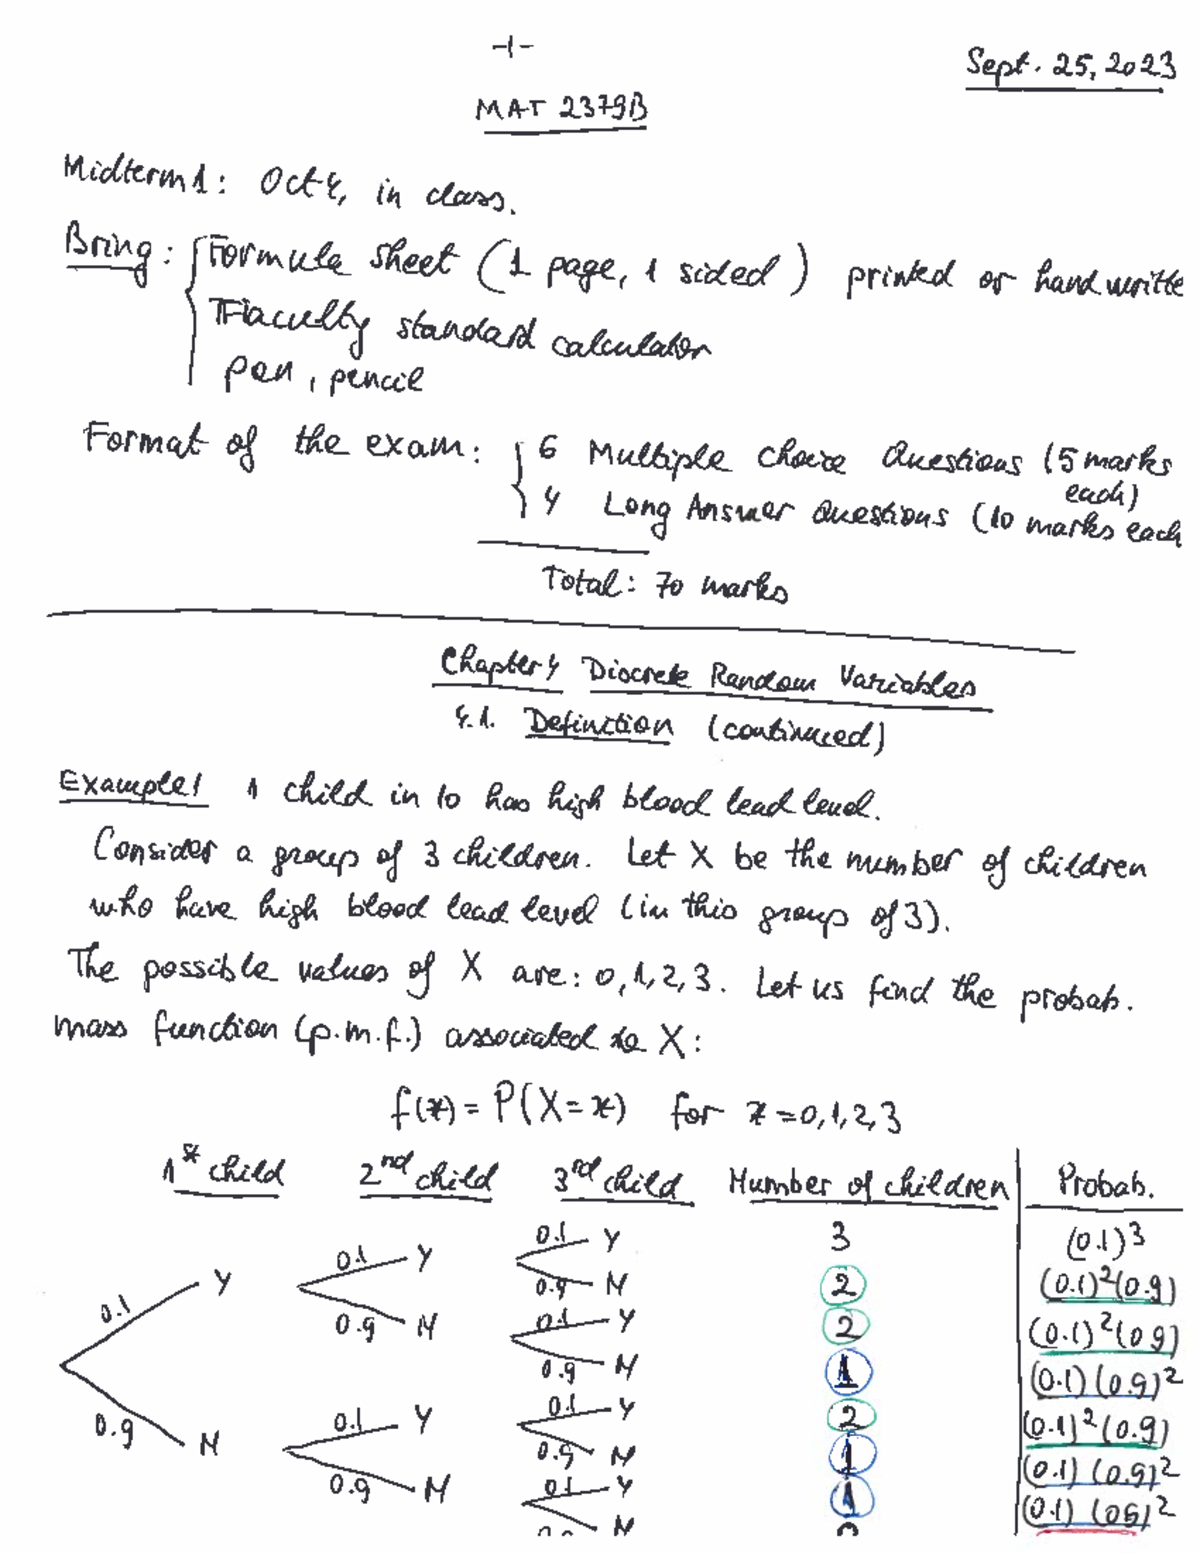 -1-
Sept. 25, 2023
MAT 2379B
Midterm 1: Oct 4, in class.
Bring: Formula sheet (1 page, 1 sided) printed or handwritte
Faculty standard calculator
pen, pencil
Format of the exam: 6 Multiple Choice Questions (5 marks each)
4 Long Answer Questions (10 marks each
Total: 70 marks
Chapter 4 Discrete Random Variables
4.1. Definition (continued)
Example 1 1 child in 10 has high blood lead level.
Consider a group of 3 children. Let X be the number of children
who have high blood lead level (in this group of 3).
The possible values of X are: 0, 1, 2, 3. Let us find the probab.
mass function (p.m.f.) associated to X:
f(x) = P(X=x) for x = 0, 1, 2, 3
1st child 2nd child 3rd child Number of children Probab.
0.1 Y 3 (0.1)³
0.1 Y 0.9 N 2 (0.1)²(0.9)
0.1 Y 0.9 N 0.1 Y 2 (0.1)²(0.9)
0.9 N 1 (0.1)(0.9)²
0.9 N 0.1 Y 0.1 Y 2 (0.1)²(0.9)
0.9 N 1 (0.1)(0.9)²
0.9 N 0.1 Y 1 (0.1)(0.9)²
0.9 N 0